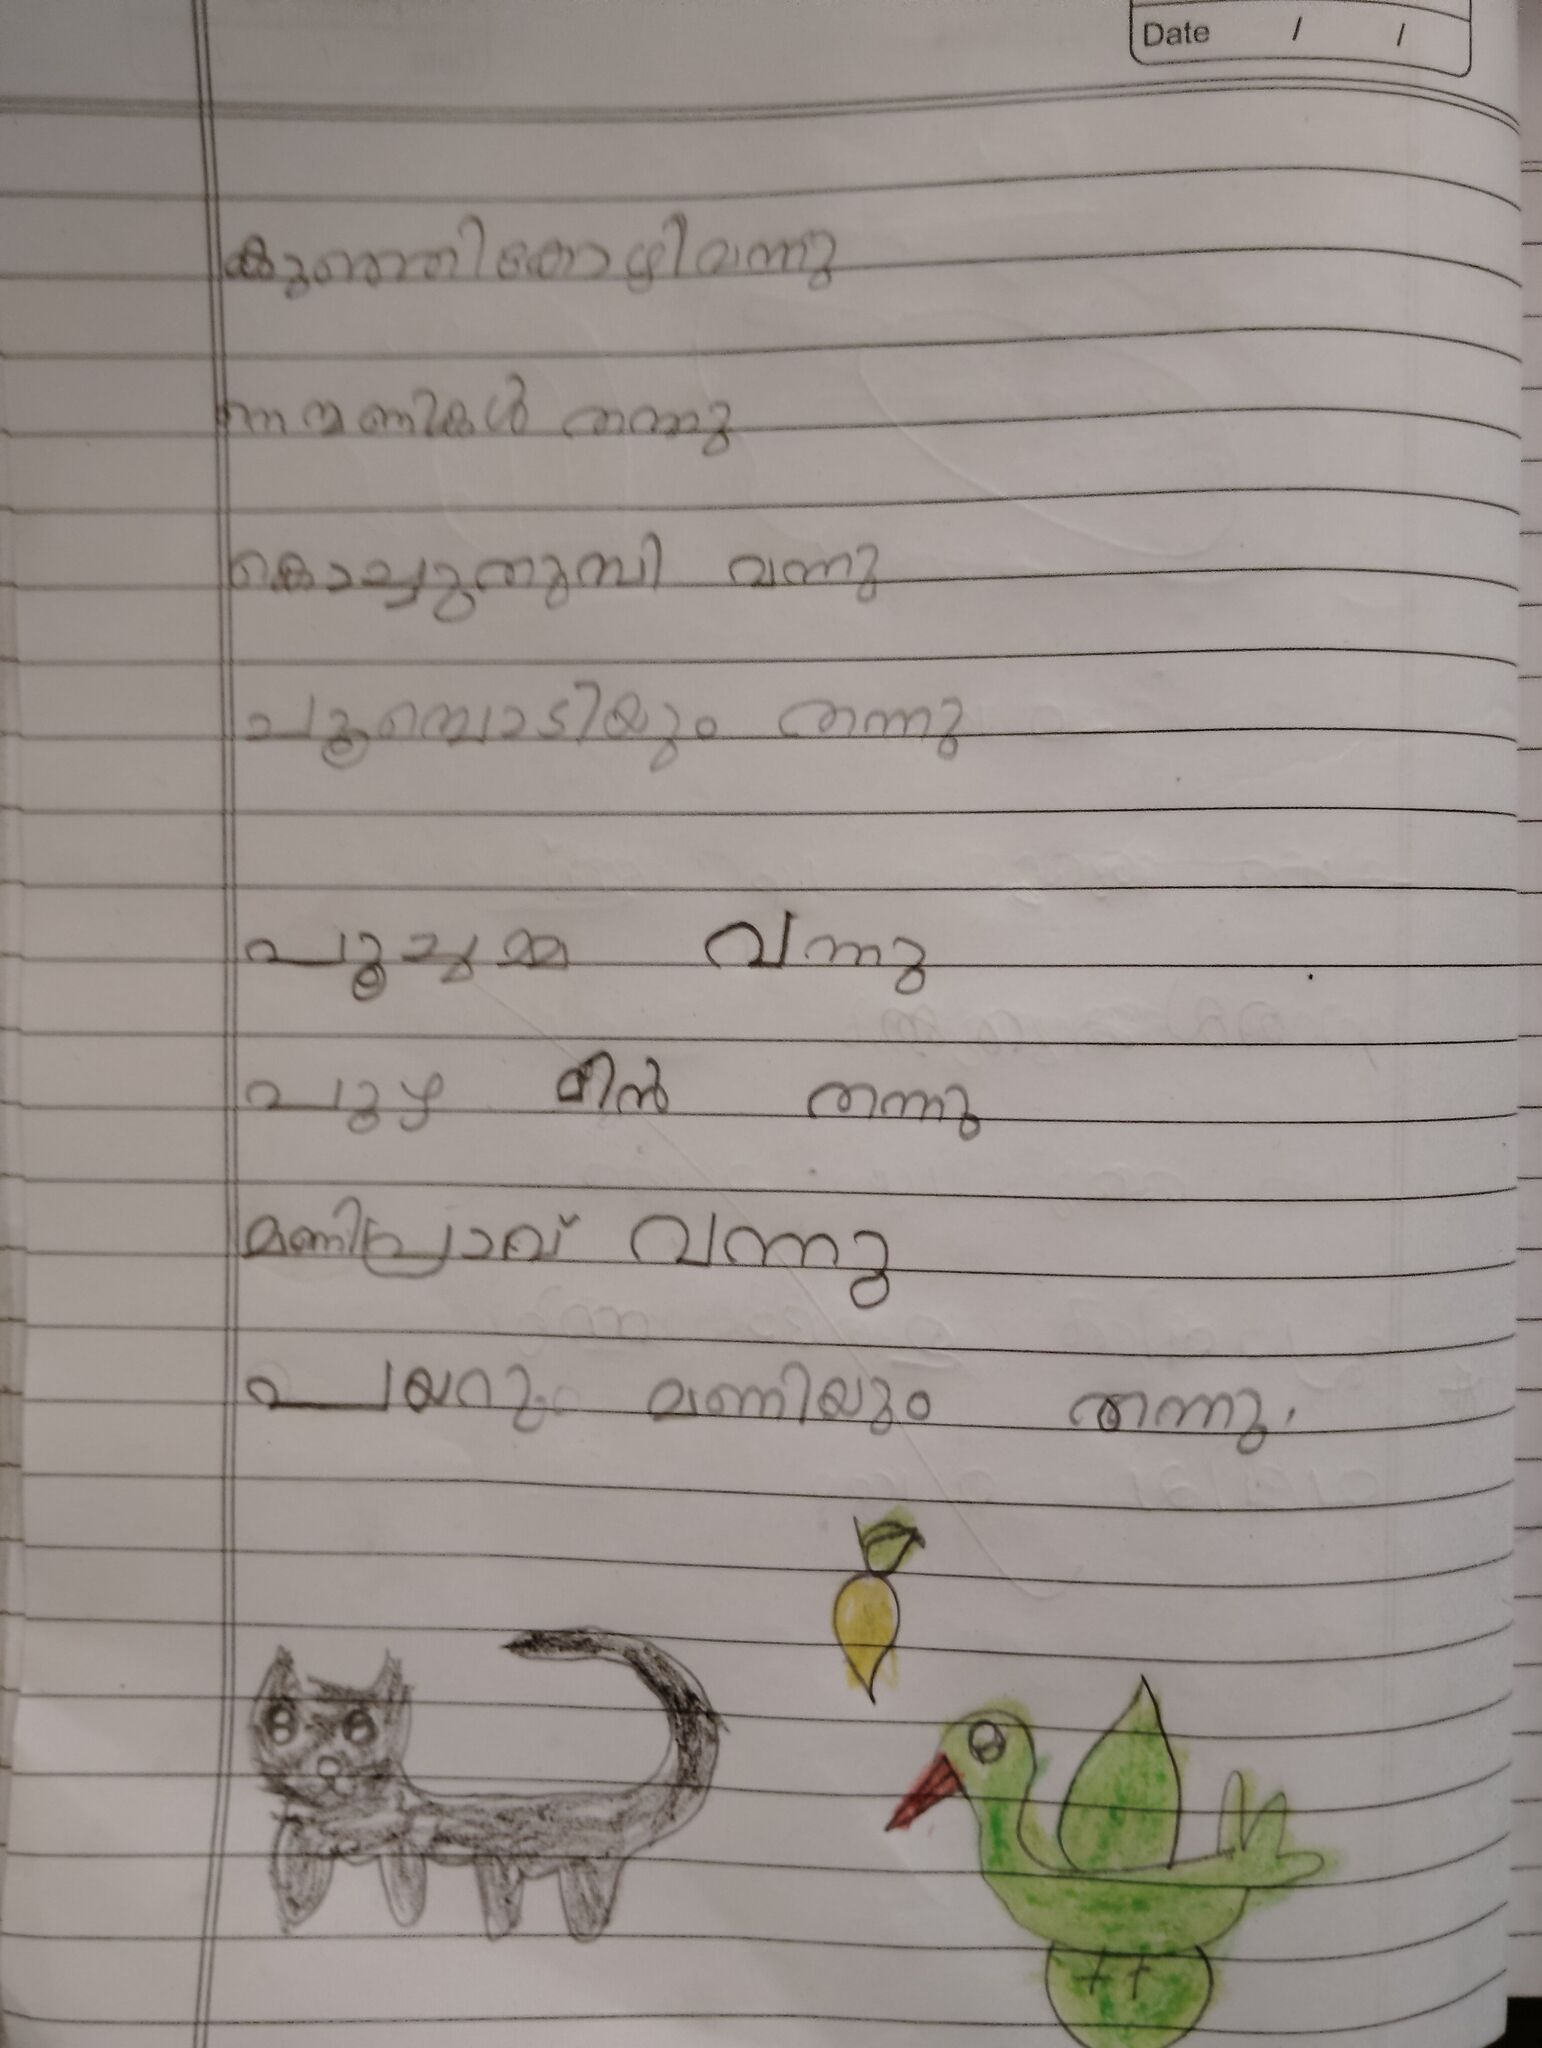 Date / /
കുഞ്ഞികോഴി വന്നു
നന്മണികൾ തന്നു
കൊച്ചുതുമ്പി വന്നു
പൂമ്പൊടിയും തന്നു
പൂച്ചമ്മ വന്നു
പുഴ മീൻ തന്നു
മണിപ്രാവ് വന്നു
പയറും മണിയും തന്നു.